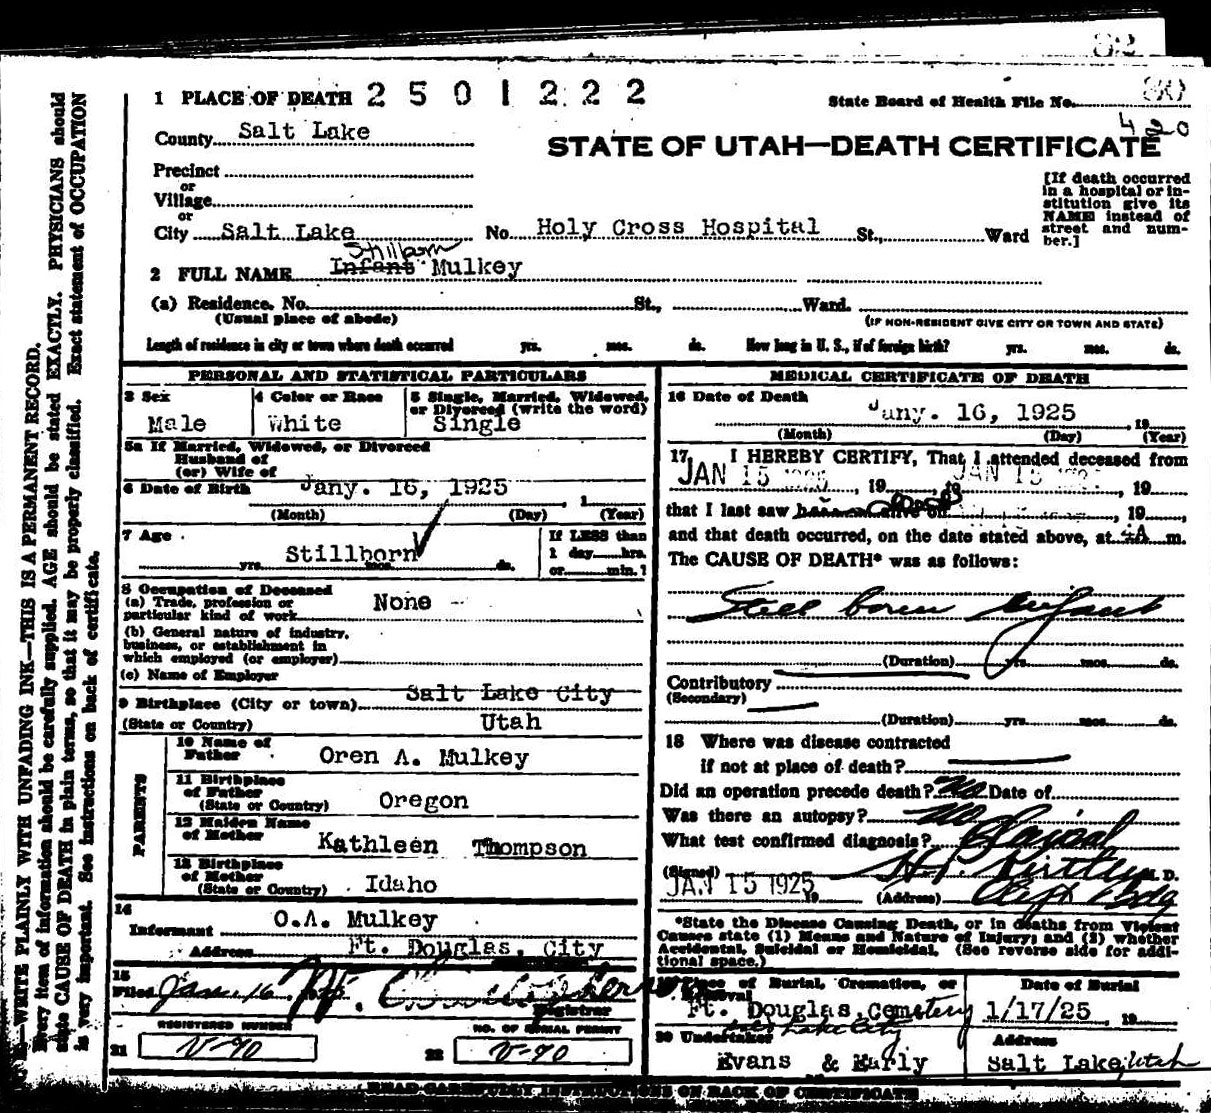 82
1 PLACE OF DEATH 2501222
State Board of Health File No. 80
420
County Salt Lake
STATE OF UTAH—DEATH CERTIFICATE
Precinct
or
Village
or
City Salt Lake No. Holy Cross Hospital St., Ward
[If death occurred
in a hospital or in-
stitution give its
NAME instead of
street and num-
ber.]
Stillborn
2 FULL NAME Infant Mulkey
(a) Residence. No. St., Ward.
(Usual place of abode)
(IF NON-RESIDENT GIVE CITY OR TOWN AND STATE)
Length of residence in city or town where death occurred yrs. mos. ds. How long in U. S., if of foreign birth? yrs. mos. ds.
PERSONAL AND STATISTICAL PARTICULARS
3 Sex
Male
4 Color or Race
White
5 Single, Married, Widowed,
or Divorced (write the word)
Single
5a If Married, Widowed, or Divorced
Husband of
(or) Wife of
6 Date of Birth Jany. 16, 1925, 1
(Month) (Day) (Year)
7 Age
Stillborn
yrs. mos. ds.
If LESS than
1 day hrs.
or min.?
8 Occupation of Deceased
(a) Trade, profession or
particular kind of work None
(b) General nature of industry,
business, or establishment in
which employed (or employer)
(c) Name of Employer
9 Birthplace (City or town) Salt Lake City
(State or Country) Utah
PARENTS
10 Name of
Father Oren A. Mulkey
11 Birthplace
of Father
(State or Country) Oregon
12 Maiden Name
of Mother Kathleen Thompson
13 Birthplace
of Mother
(State or Country) Idaho
14
Informant O.A. Mulkey
Address Ft. Douglas, City
15
Filed Jan. 16
Registrar
REGISTERED NUMBER
21 V-90
NO. OF BURIAL PERMIT
22 V-90
MEDICAL CERTIFICATE OF DEATH
16 Date of Death
Jany. 16, 1925, 19
(Month) (Day) (Year)
17 I HEREBY CERTIFY, That I attended deceased from
JAN 15 1925, 19, to JAN 15, 19
that I last saw h alive on, 19,
and that death occurred, on the date stated above, at m.
The CAUSE OF DEATH* was as follows:
Still born infant
(Duration) yrs. mos. ds.
Contributory
(Secondary)
(Duration) yrs. mos. ds.
18 Where was disease contracted
if not at place of death?
Did an operation precede death? No Date of
Was there an autopsy? No
What test confirmed diagnosis?
(Signed) H.P. Kirtley M. D.
JAN 15 1925
19 (Address) Clift Bldg
*State the Disease Causing Death, or in deaths from Violent
Causes state (1) Means and Nature of Injury; and (2) whether
Accidental, Suicidal or Homicidal. (See reverse side for addi-
tional space.)
19 Place of Burial, Cremation, or
Removal
Ft. Douglas, Cemetery
Salt Lake City
Date of Burial
1/17/25, 19
20 Undertaker
Evans & Early
Address
Salt Lake, Utah
READ CAREFULLY INSTRUCTIONS ON BACK OF CERTIFICATE
WRITE PLAINLY WITH UNFADING INK—THIS IS A PERMANENT RECORD.
Every item of information should be carefully supplied. AGE should be stated EXACTLY. PHYSICIANS should
state CAUSE OF DEATH in plain terms, so that it may be properly classified. Exact statement of OCCUPATION
is very important. See instructions on back of certificate.